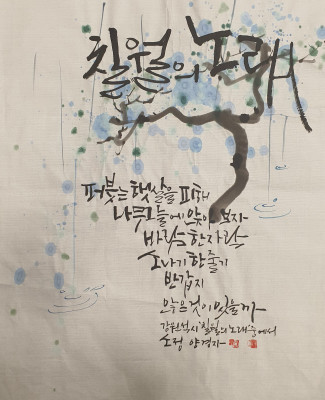 칠월의 노래
퍼붓는 햇살을 피해
나뭇그늘에 앉아 보자
바람 한자락
소나기 한줄기
반갑지
않은 것이 있을까
강원석 시 "칠월의 노래" 중에서
소정 양경자